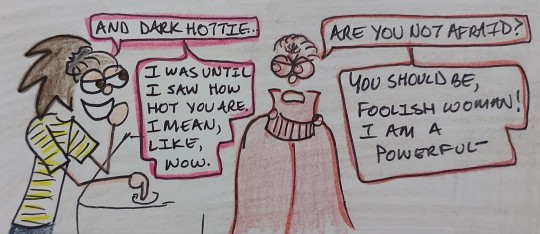 AND DARK HOTTIE.
ARE YOU NOT AFRAID?
I WAS UNTIL
I SAW HOW
HOT YOU ARE.
I MEAN,
LIKE,
WOW.
YOU SHOULD BE,
FOOLISH WOMAN!
I AM A
POWERFUL-